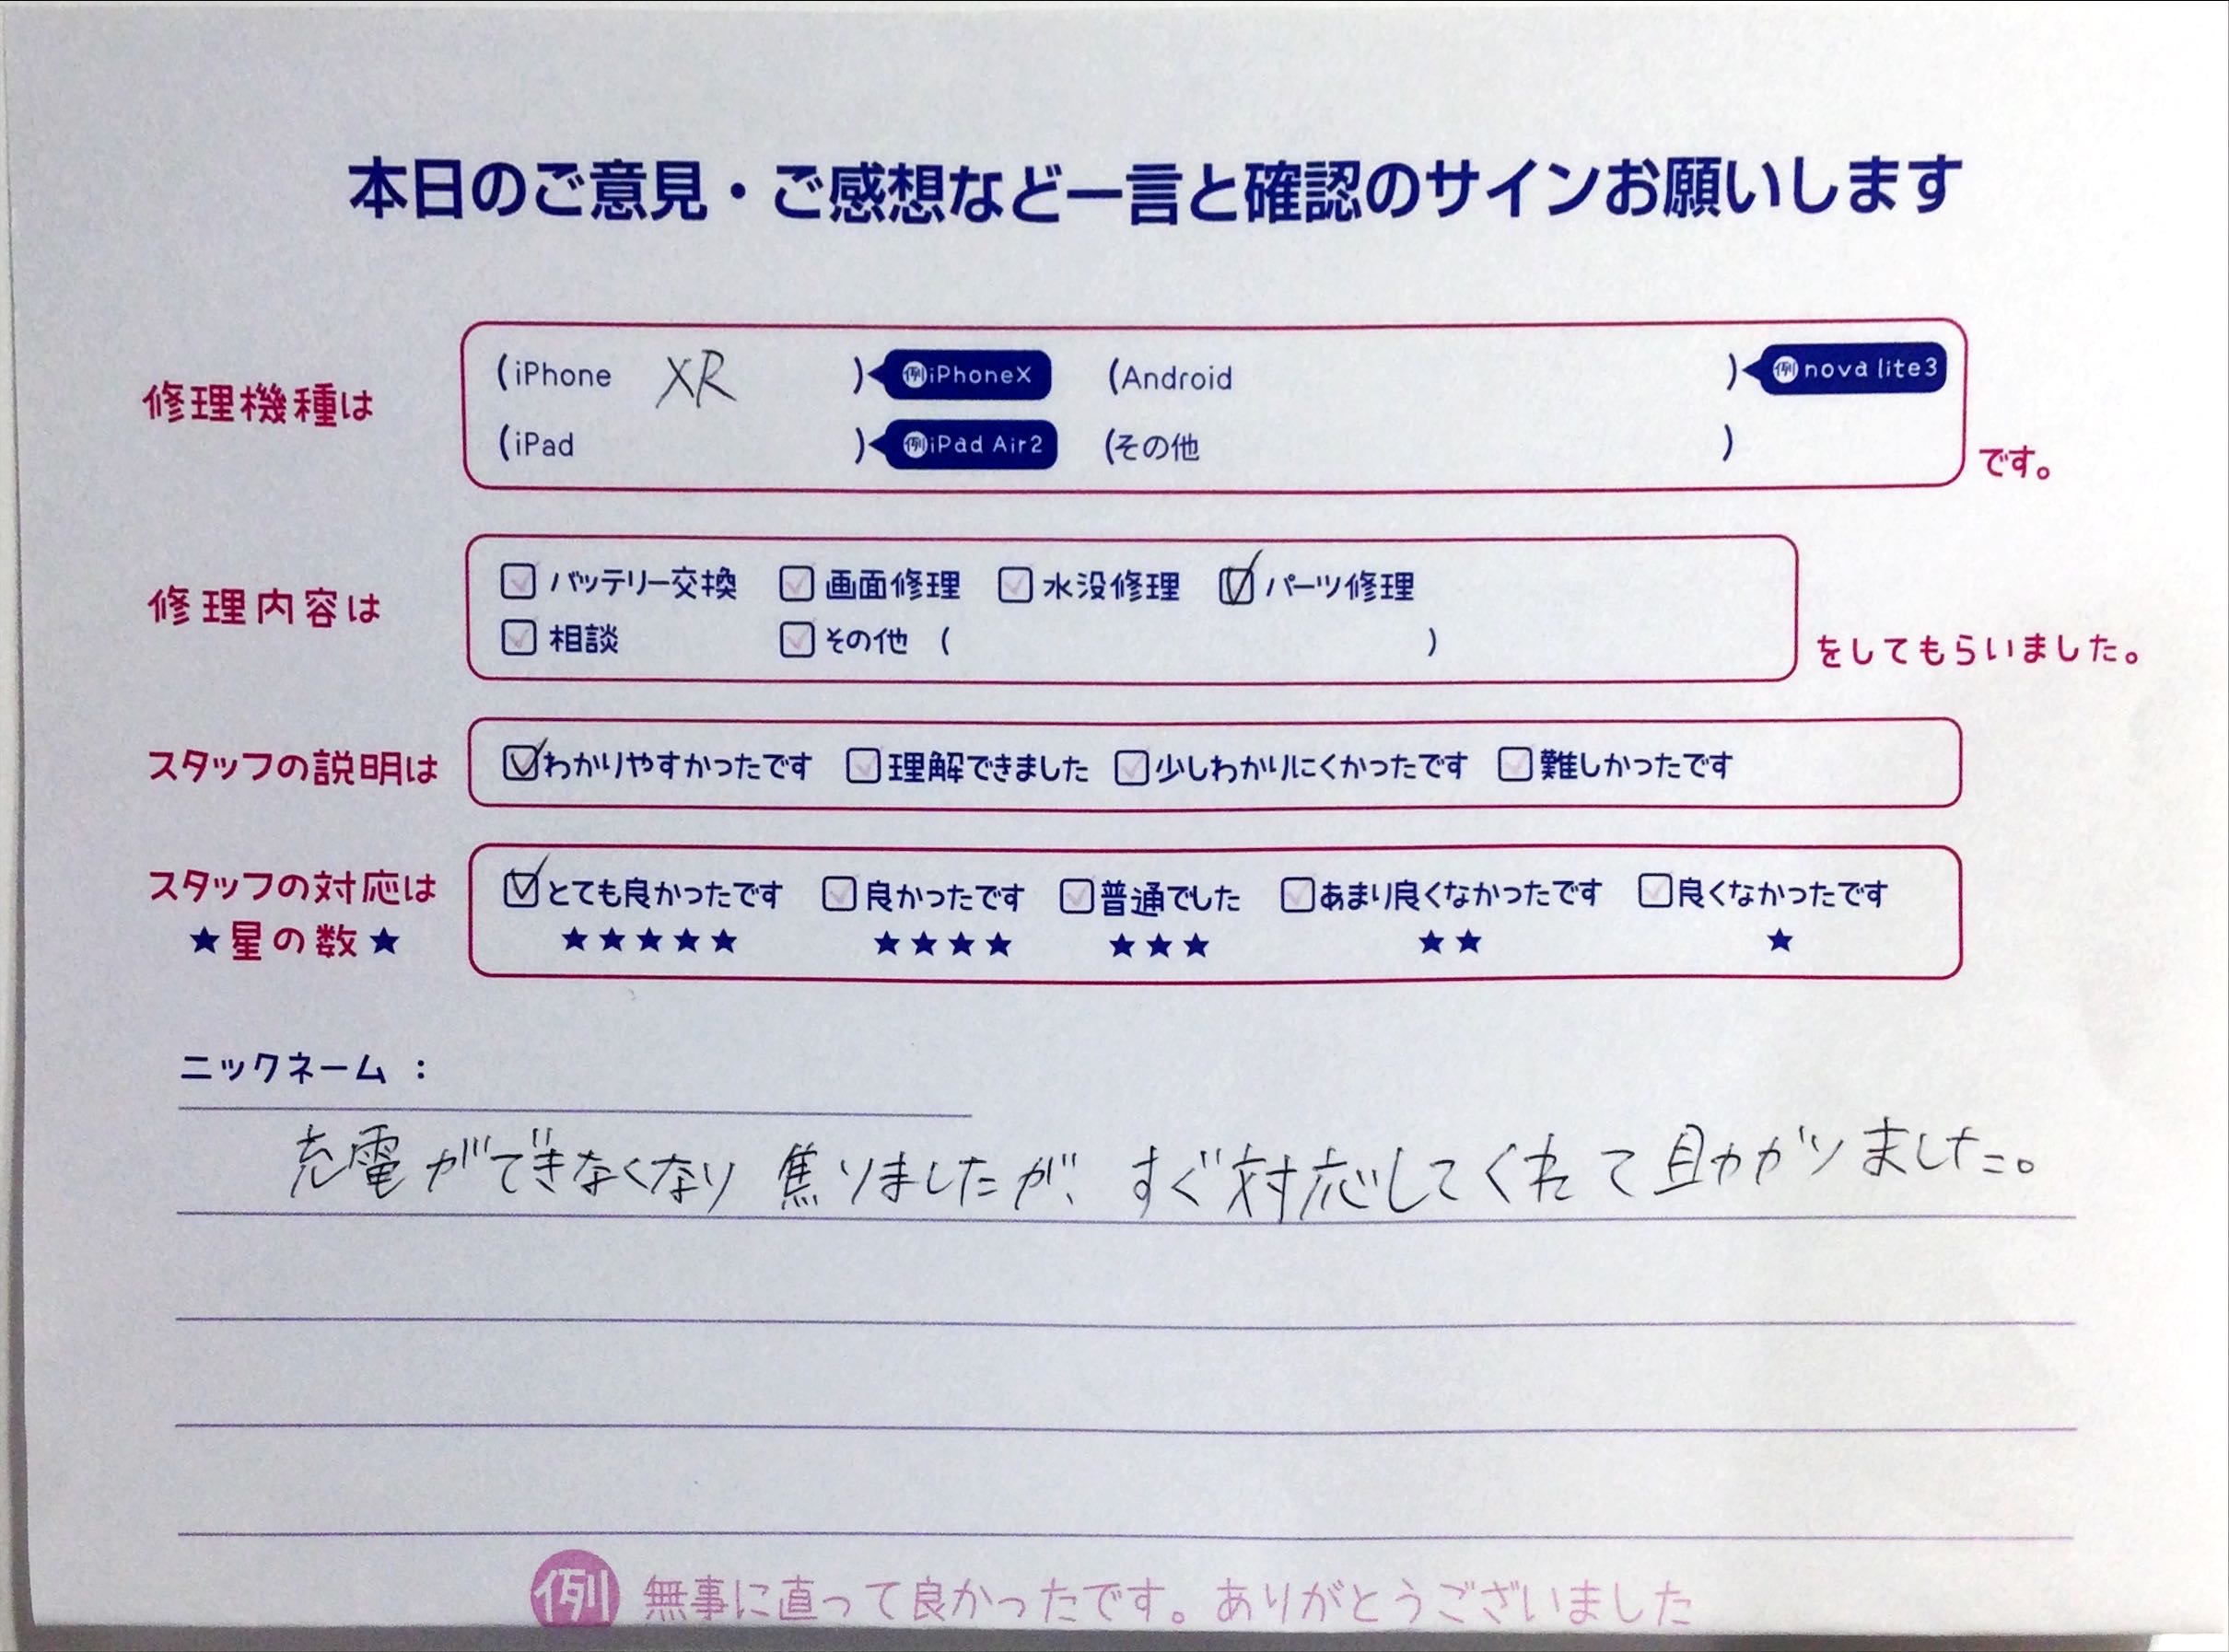 本日のご意見・ご感想など一言と確認のサインお願いします
修理機種は (iPhone XR ) 例iPhoneX (Android ) 例nova lite3
(iPad ) 例iPad Air2 (その他 ) です。
修理内容は バッテリー交換 画面修理 水没修理 パーツ修理
相談 その他 ( ) をしてもらいました。
スタッフの説明は わかりやすかったです 理解できました 少しわかりにくかったです 難しかったです
スタッフの対応は とても良かったです 良かったです 普通でした あまり良くなかったです 良くなかったです
★星の数★ ★★★★★ ★★★★ ★★★ ★★ ★
ニックネーム :
充電ができなくなり焦りましたが、すぐ対応してくれて助かりました。
例 無事に直って良かったです。ありがとうございました